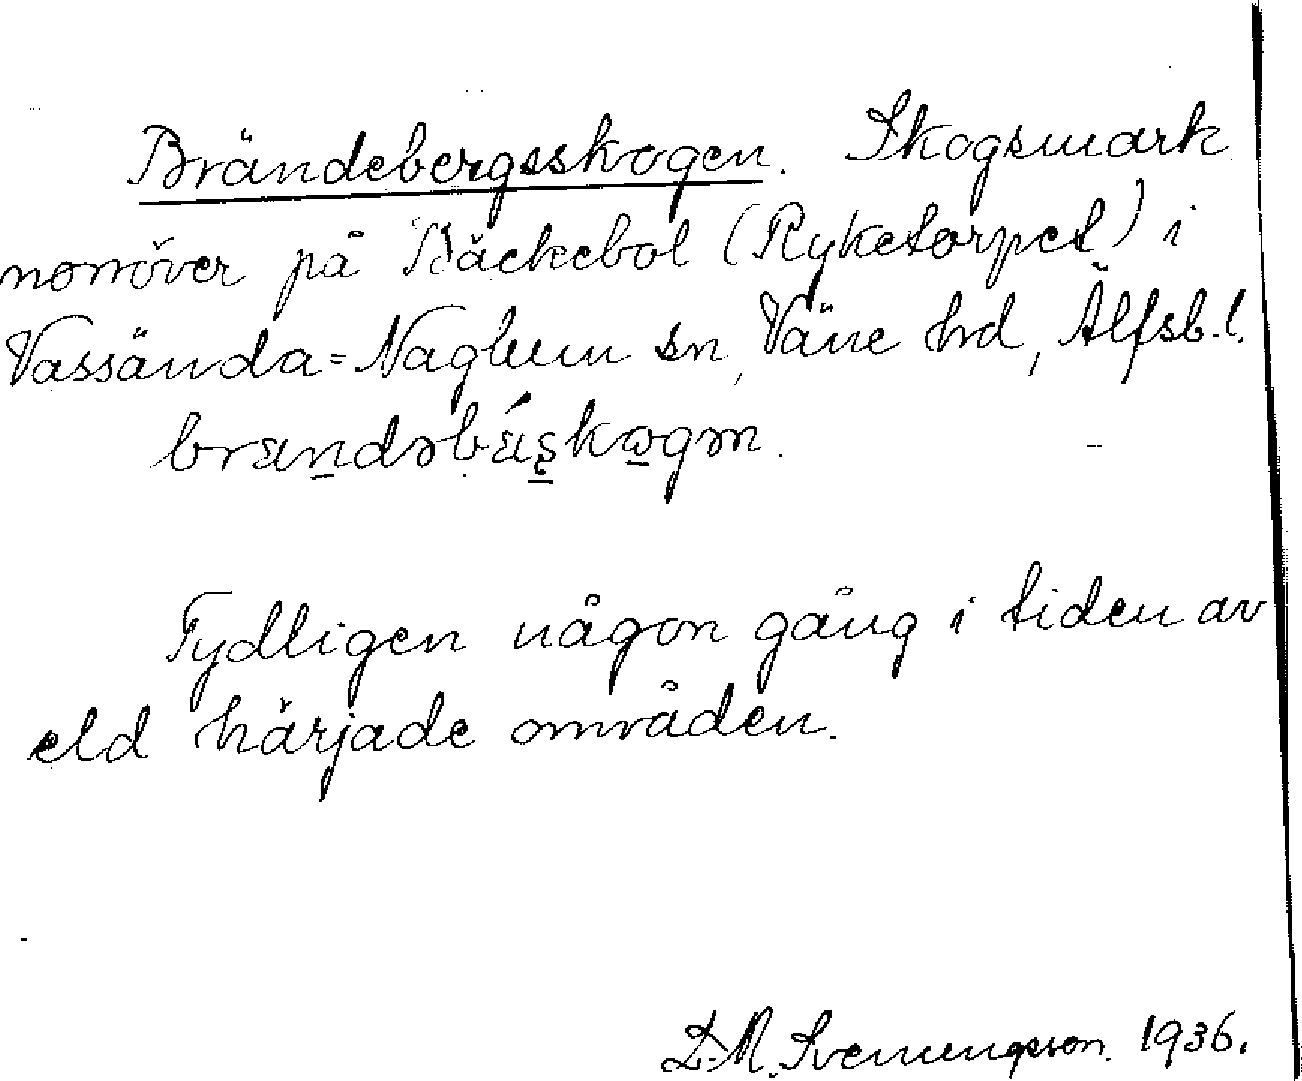 Brändebergsskogen. Skogsmark
norröver på Bäckebol (Ryketorpet) i
Vassända=Naglum sn, Väne hd, Älfsb. l.
Tydligen någon gång i tiden av
eld härjade områden.
D.M. Svenungsson. 1936.